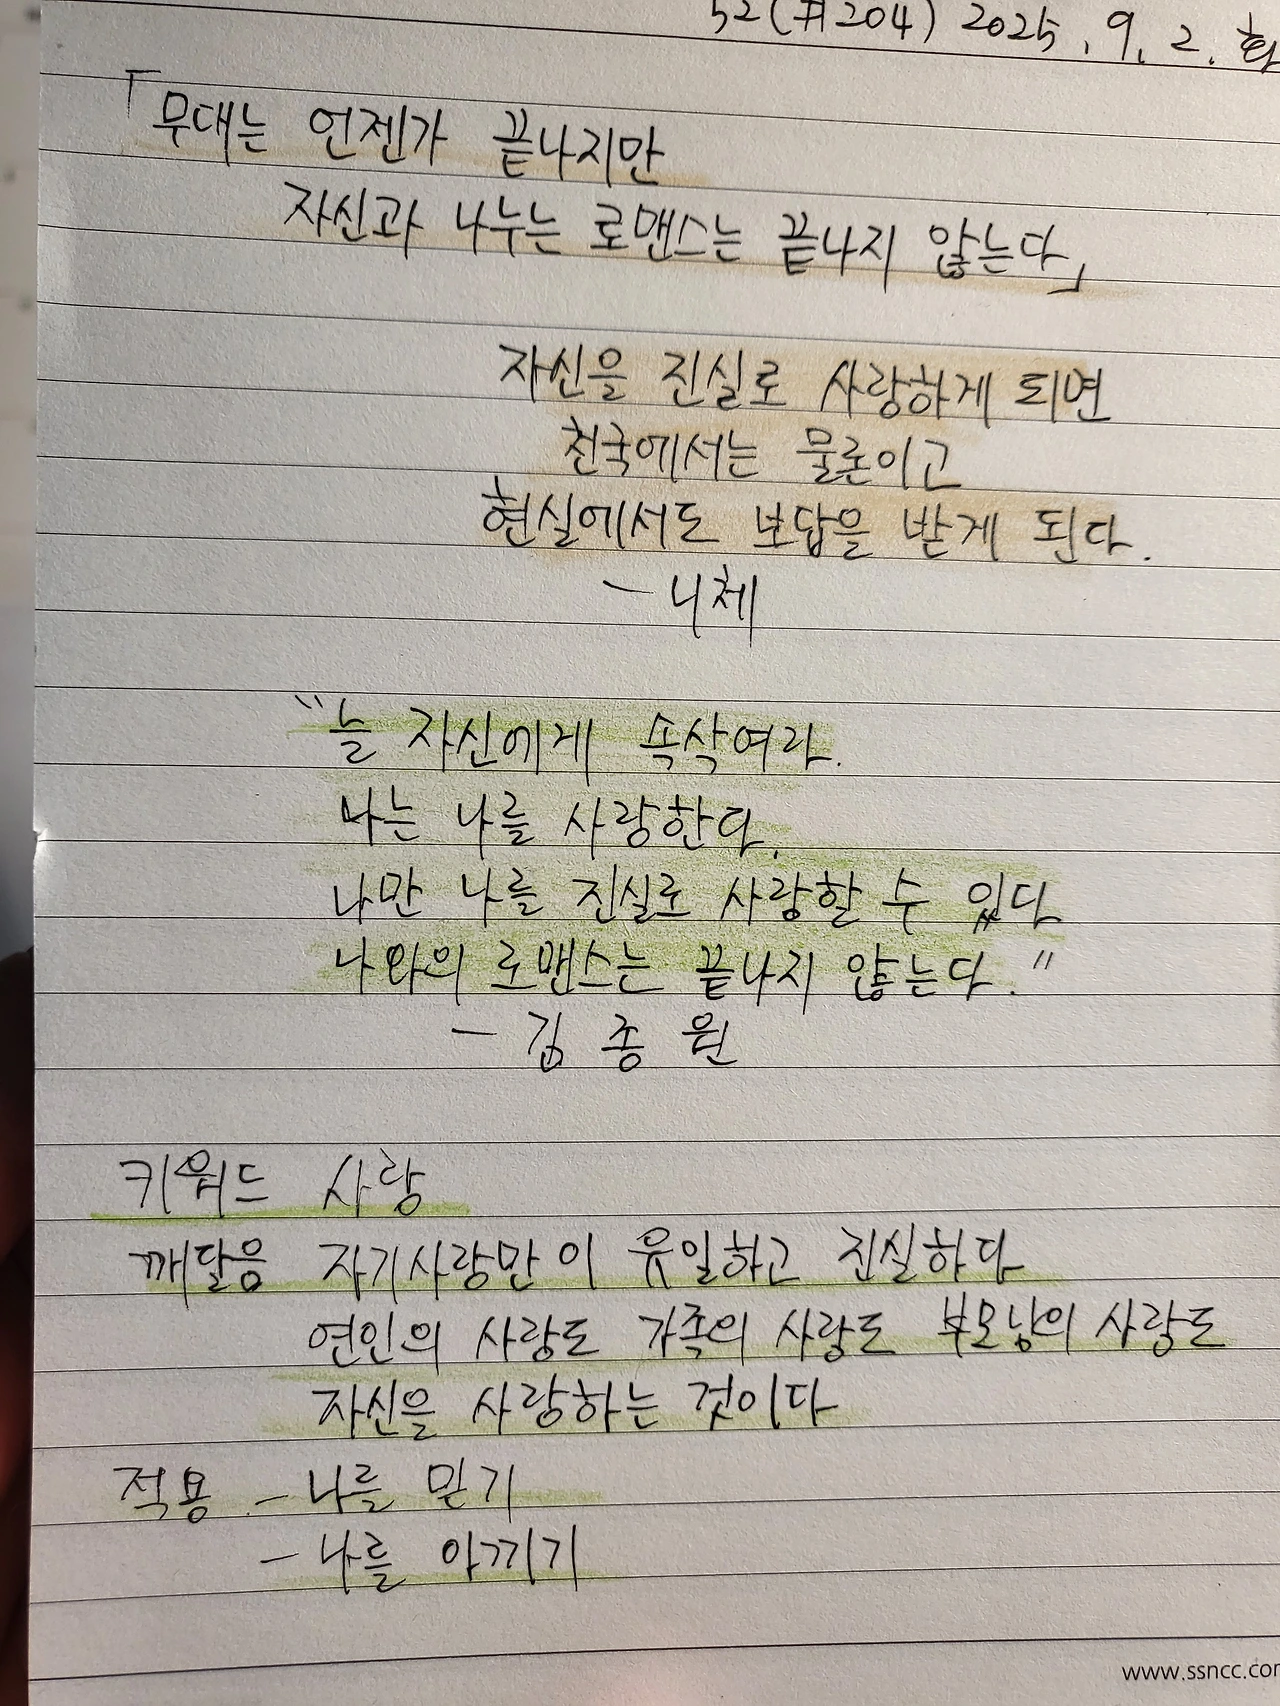 52(#204) 2025. 9. 2. 화
「무대는 언젠가 끝나지만
자신과 나누는 로맨스는 끝나지 않는다」
자신을 진실로 사랑하게 되면
천국에서는 물론이고
현실에서도 보답을 받게 된다.
- 니체
"늘 자신에게 속삭여라.
나는 나를 사랑한다.
나만 나를 진실로 사랑할 수 있다
나와의 로맨스는 끝나지 않는다."
- 김종원
키워드 사랑
깨달음 자기사랑만이 유일하고 진실하다
연인의 사랑도 가족의 사랑도 부모님의 사랑도
자신을 사랑하는 것이다
적용 - 나를 믿기
- 나를 아끼기
www.ssncc.com